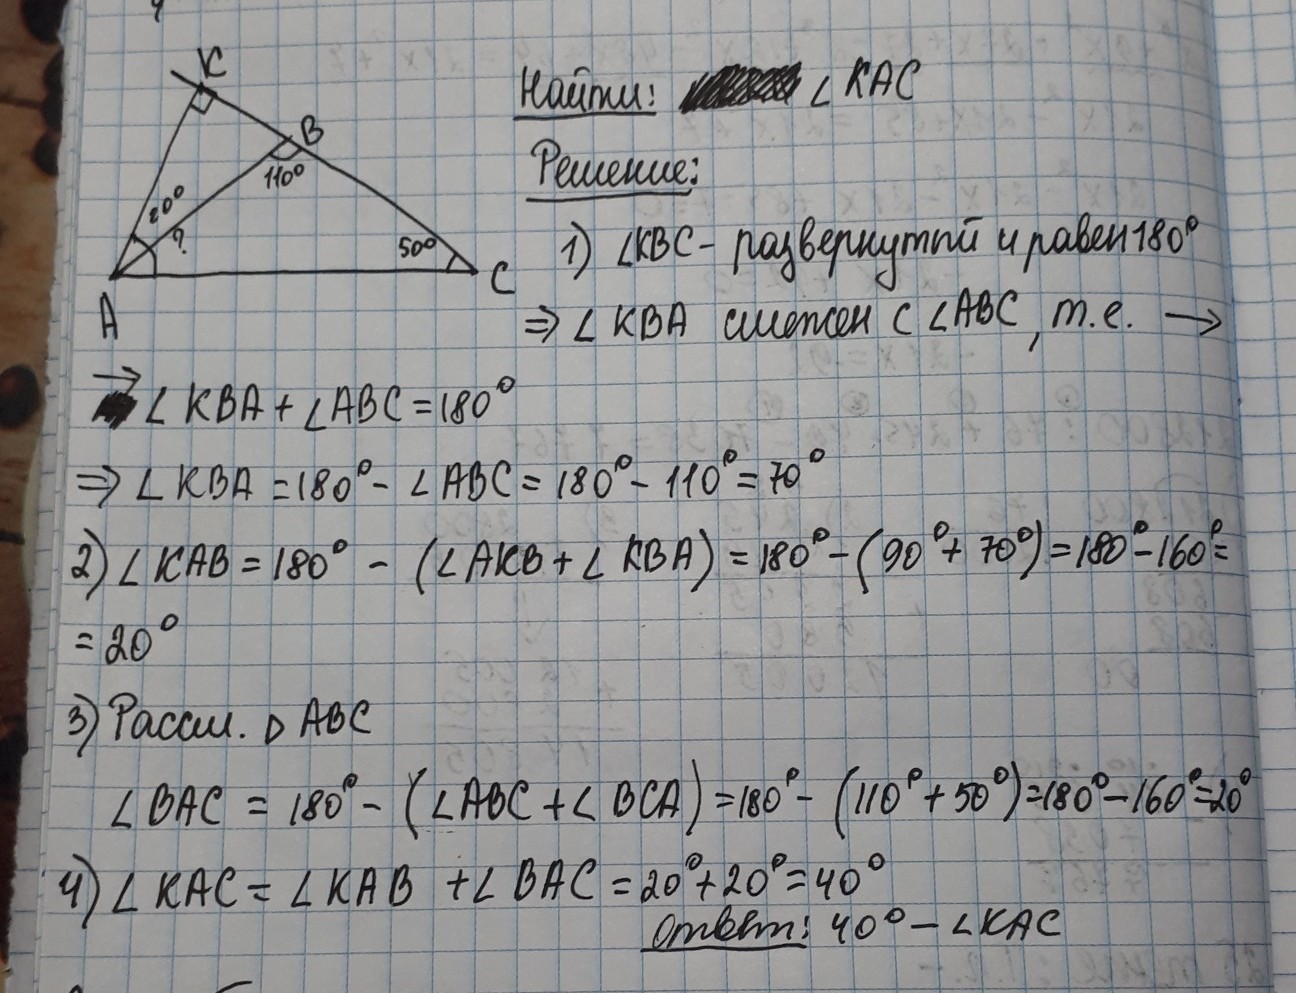 K
B
110°
20°
?
50°
A
C
Найти: ∠KAC
Решение:
1) ∠KBC - развернутый и равен 180°
⇒ ∠KBA смежен с ∠ABC, т.е. →
→ ∠KBA + ∠ABC = 180°
⇒ ∠KBA = 180° - ∠ABC = 180° - 110° = 70°
2) ∠KAB = 180° - (∠AKB + ∠KBA) = 180° - (90° + 70°) = 180° - 160° =
= 20°
3) Рассм. ▷ ABC
∠BAC = 180° - (∠ABC + ∠BCA) = 180° - (110° + 50°) = 180° - 160° = 20°
4) ∠KAC = ∠KAB + ∠BAC = 20° + 20° = 40°
Ответ: 40° - ∠KAC